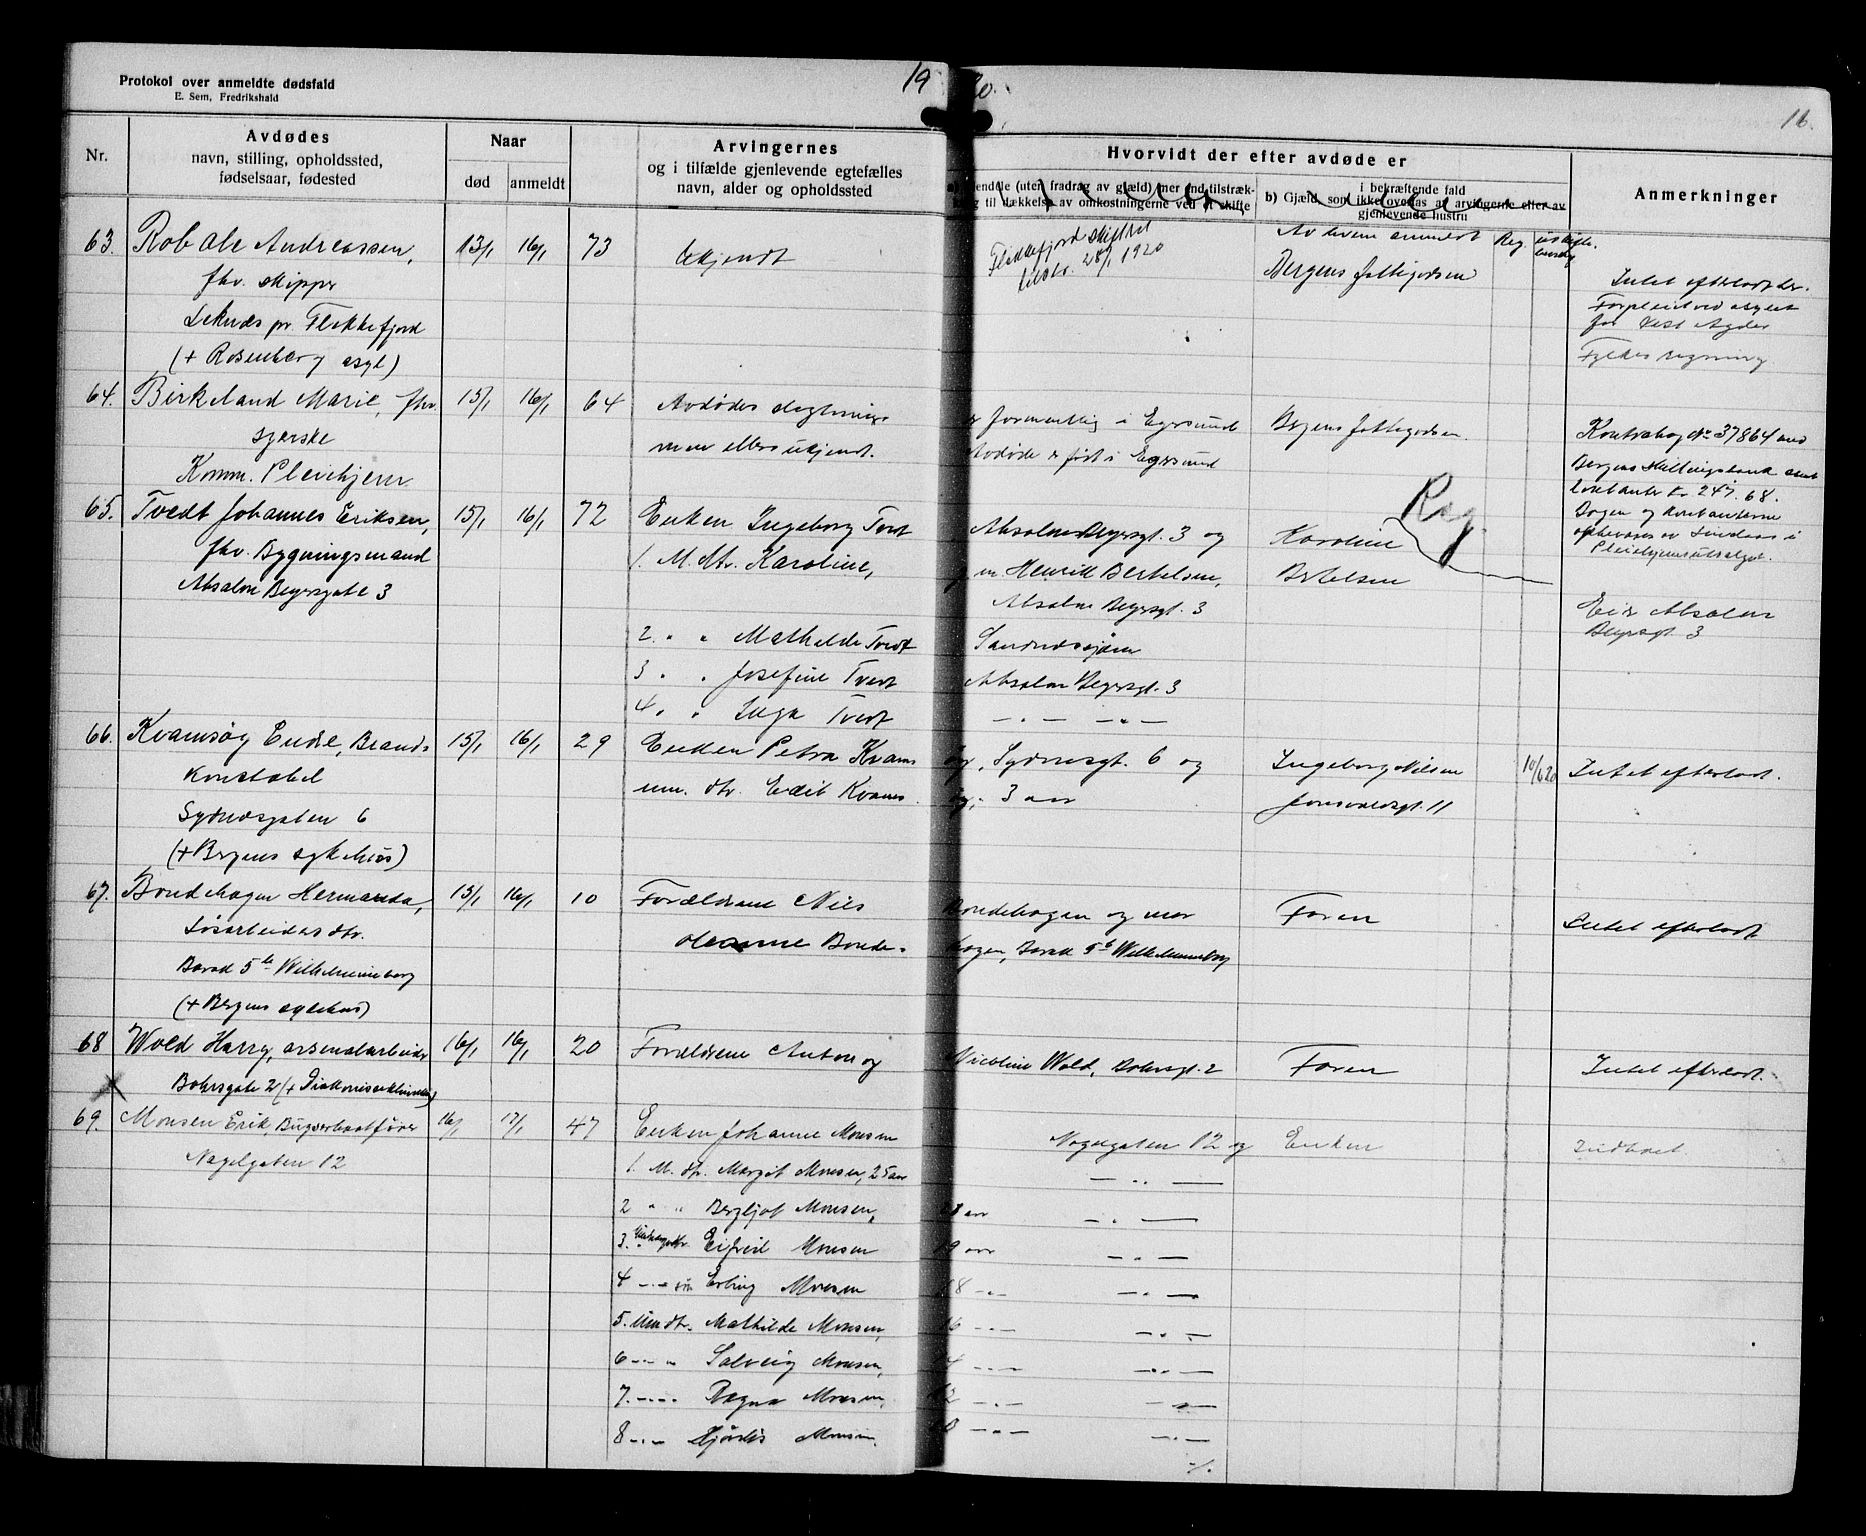 Protokol over anmeldte dødsfald
E. Sem, Fredrikshald
19 20.
16.
Nr.
Avdødes
navn, stilling, opholdssted,
fødselsaar, fødested
Naar
død
anmeldt
Arvingernes
og i tilfælde gjenlevende egtefælles
navn, alder og opholdssted
Hvorvidt der efter avdøde er
eiendele (uten fradrag av gjæld) mer end tilstræk-
kelig til dækkelse av omkostningerne ved et skifte
i bekræftende fald
b) Gjæld, som ikke overtas av arvingerne eller av
gjenlevende hustru
Anmerkninger
Av hvem anmeldt Reg.
63. Rob Ole Andreassen, 13/1 16/1 73 Ukjendt
Flekkefjord skifteret
tilskr. 28/1 1920
Bergens fattigvæsen
fhv. skipper
Intet efterladt
Leknes pr. Flekkefjord
for Vest Agder
(+ Rosenberg asyl)
Fylkes regning
64. Birkeland Marie, fhv. 15/1 16/1 64 Avdødes slegtninge
er formentlig i Egersund
Bergens fattigvæsen.
Kontrabog No 37864 med
syerske
men ellers ukjendt.
Avdøde er født i Egersund
Bergens Skillingsbank samt
Komm. Pleiehjem
kontanter kr. 247.68.
Bogen og kontanterne
opbevares av
65. Tvedt Johannes Eriksen, 15/1 16/1 72 Enken Ingeborg Tvedt
Absalon Beyersgt. 3 og
Karoline
Reg.
fhv. Bygningsmand
1. M. dtr. Karoline,
g. m. Henrik Bertelsen,
Bertelsen
Absalon Beyersgate 3
Absalon Beyersgt. 3
Eier Absalon
Beyersgt. 3
2. " " Mathilde Tvedt
Sandnessjøen
3 " " Josefine Tvedt
Absalon Beyersgt. 3
4. " " Inga Tvedt
— " — — " —
66. Kvamsøy Endre, Brand- 15/1 16/1 29 Enken Petra Kvams
øy, Sydnesgt. 6 og
Ingeborg Nilsen
10/6 20
Intet efterladt.
konstabel
um. dtr. Edit Kvams-
øy, 3 aar
Jonsvoldsgt. 11
Sydnesgaten 6
(+ Bergens sykehus)
67. Bondehagen Hermanda, 15/1 16/1 10 Forældrene Nils
Bondehagen og mor
Faren
Intet efterladt
Løsarbeiders dtr.
Bonde-
hagen, Barak 5b Wilhelmineborg
Barak 5b Wilhelmineborg
(+ Bergens sykehus)
68 Wold Harry, arsenalarbeider 16/1 16/1 20 Forældrene Anton og
Nicoline Wold, Bohrsgt. 2
Faren
Intet efterladt.
Bohrsgate 2 (+ Diakonisseklinikken)
69. Monsen Erik, Bugserbaatfører 16/1 17/1 47 Enken Johanne Monsen
Nagelgaten 12 og
Enken
Indboet
Nagelgaten 12
1. M. dtr. Margit Monsen, 25 aar
— " —
2 " " Bergljot Monsen,
— " —
3. Eifred Monsen
19 aar — " —
4 — " — søn Erling Monsen
18 — " — — " —
5. Um dtr. Mathilde Monsen,
16 — " — — " —
6 — " — Solveig Monsen,
14 — " — — " —
7. — " — Ragna Monsen,
12 — " — — " —
8 — " — Hjørdis Monsen.
— " — — " —